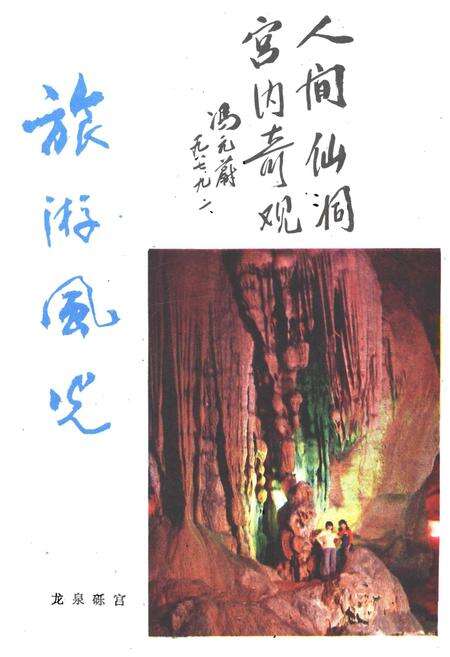 人间仙洞
宫内奇观
冯元蔚
一九八七、九、六
旅游风光
龙泉砾宫